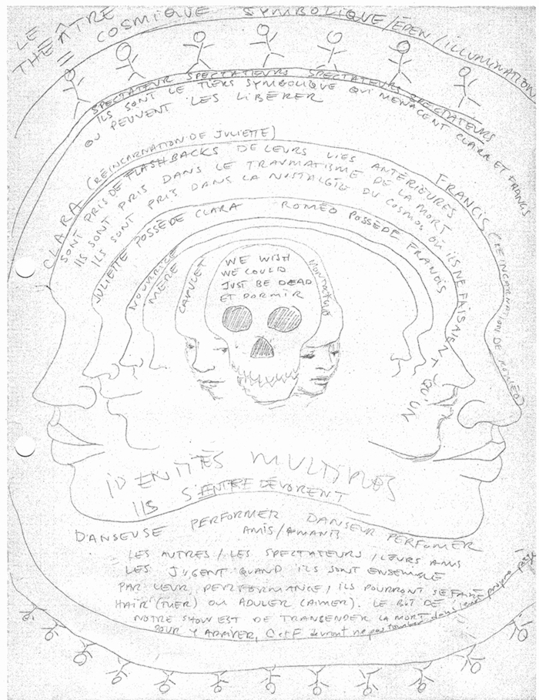 LE
THÉÂTRE COSMIQUE SYMBOLIQUE/ÉDEN/ILLUMINATION
SPECTATEUR SPECTATEURS SPECTATEURS SPECTATEURS
ILS SONT LE TIERS SYMBOLIQUE QUI MENACENT CLARA ET FRANCIS
OU PEUVENT LES LIBÉRER
CLARA (RÉINCARNATION DE JULIETTE)
FRANCIS (RÉINCARNATION DE ROMÉO)
SONT PRIS DE FLASHBACKS DE LEURS VIES ANTÉRIEURES
ILS SONT PRIS DANS LE TRAUMATISME DE LA MORT
ILS SONT PRIS DANS LA NOSTALGIE DU COSMOS OÙ ILS NE FAISAIENT QU'UN
JULIETTE POSSÈDE CLARA
ROMÉO POSSÈDE FRANCIS
NOURRICE
MÈRE
CAPULET
MONTAIGU
WE WISH
WE COULD
JUST BE DEAD
ET DORMIR
IDENTITÉS MULTIPLES
ILS S'ENTRE DÉVORENT
DANSEUSE PERFORMER DANSEUR PERFORMER
AMIS/AMANTS
LES AUTRES/LES SPECTATEURS/LEURS AMIS
LES JUGENT QUAND ILS SONT ENSEMBLE
PAR LEUR PERFORMANCE/ILS POURRONT SE FAIRE
HAIR (TUER) OU ADULER (AIMER). LE BUT DE
NOTRE SHOW EST DE TRANSCENDER LA MORT
POUR Y ARRIVER, C et F doivent ne pas tomber dans leur propre